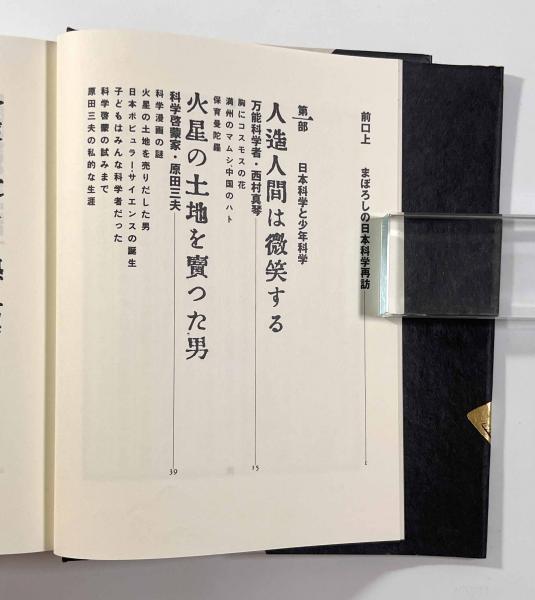 前口上 まぼろしの日本科学再訪 1
第一部 日本科学と少年科学
人造人間は微笑する
万能科学者・西村真琴 15
胸にコスモスの花
満州のマムシ、中国のハト
保育曼陀羅
火星の土地を賣つた男
科学啓蒙家・原田三夫 39
科学漫画の謎
火星の土地を売りだした男
日本ポピュラーサイエンスの誕生
子どもはみんな科学者だった
科学啓蒙の試みまで
原田三夫の私的な生涯